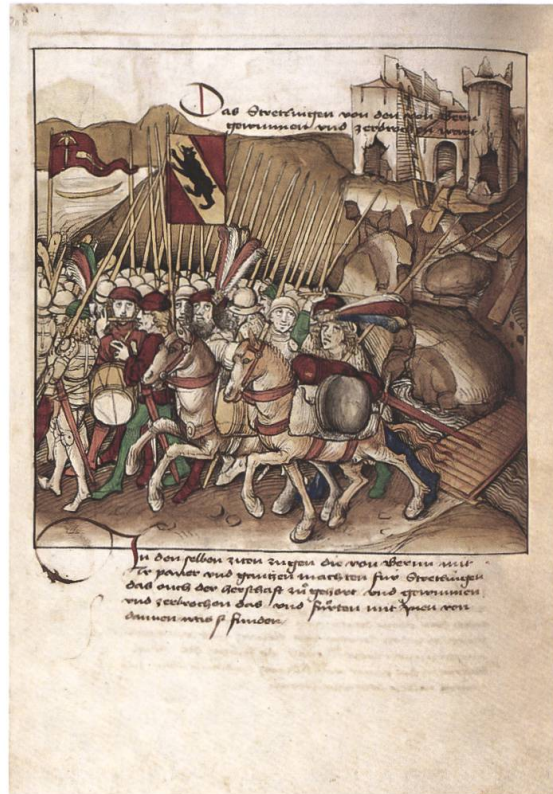 Das Stretlingen von den von Bern
gewunnen und zerbrochen wart
In den selben ziten zugen die von Bernn mit
Ir paner und gantzen machten für Stretlingen
das ouch der herschaft zů gehort und gewunnen
und zerbrachen das und fůrten mit Inen von
dannen was si funden